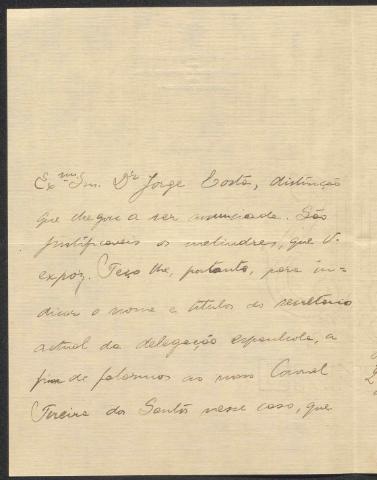 Exmo Snr. Dr Jorge Costa, distincção
que chegou a ser annunciada. São
justificaveis os melindres, que V.
expoz. Peço lhe, portanto, para in-
dicar o nome e titulos do secretario
actual da delegação espanhola, a
fim de falarmos ao nosso Coronel
Pereira dos Santos nesse caso, que